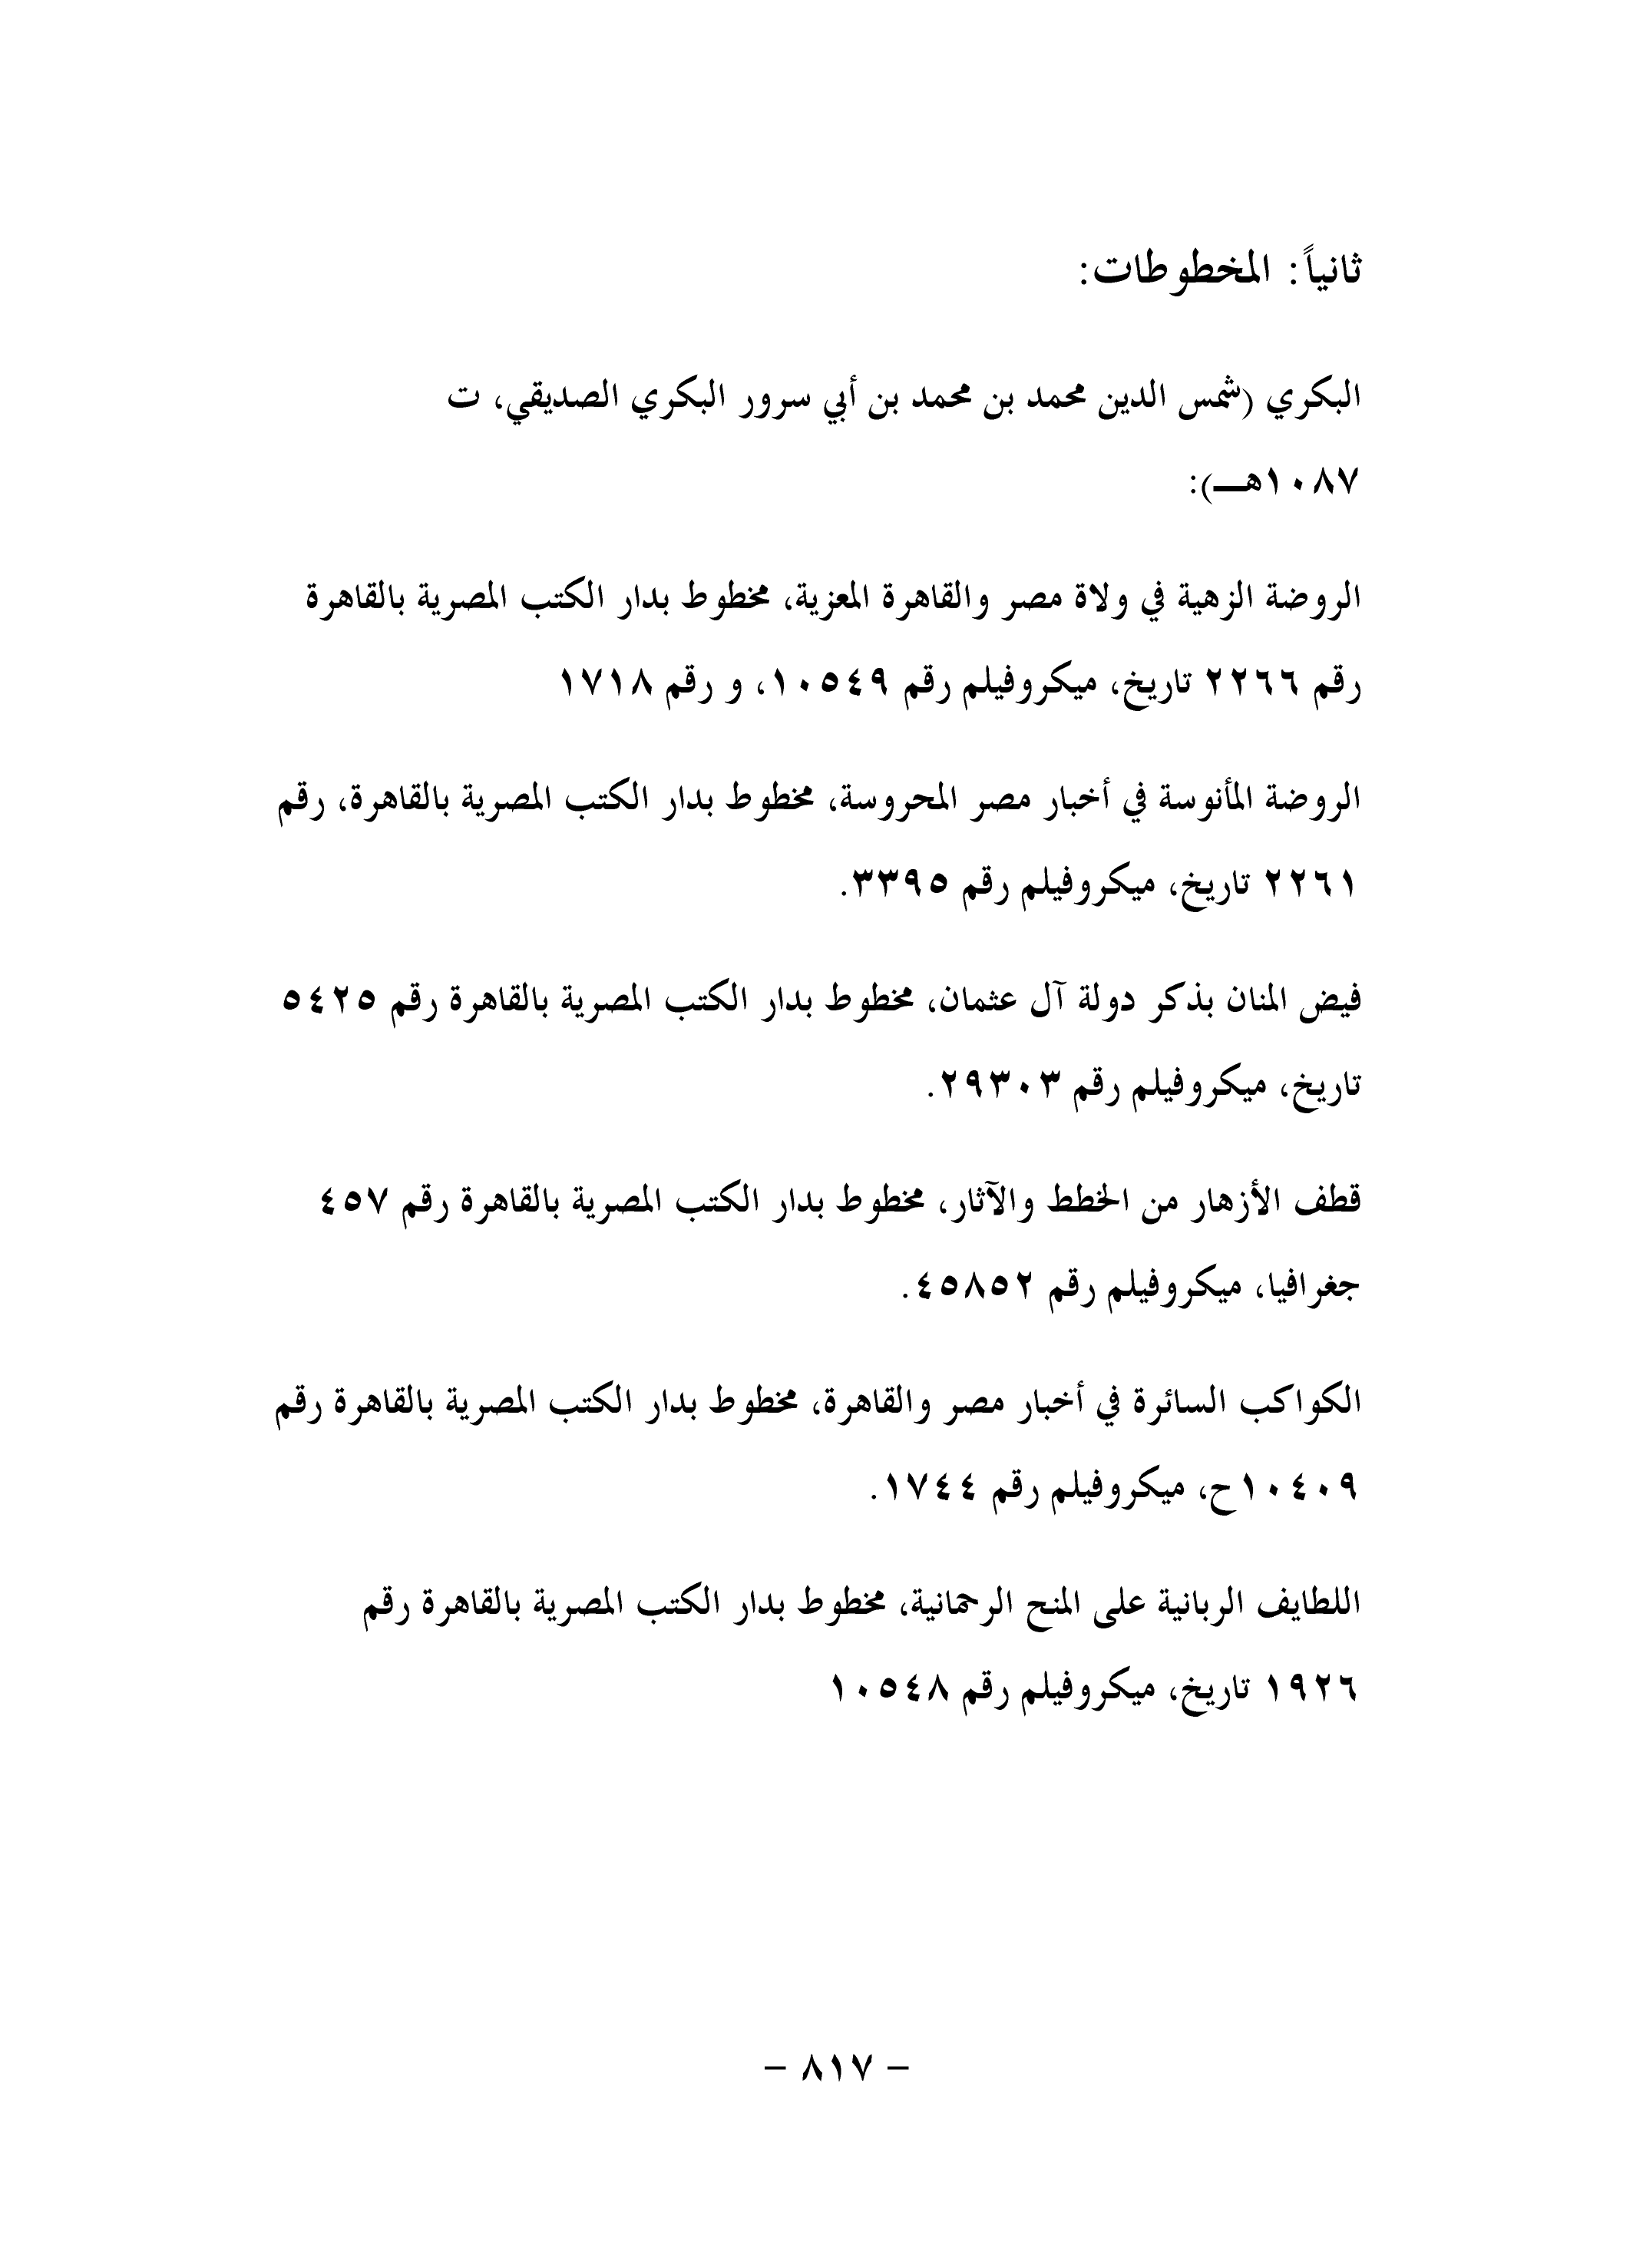 ثانياً: المخطوطات:
البكري (شمس الدين محمد بن محمد بن أبي سرور البكري الصديقي، ت
١٠٨٧هــ):
الروضة الزهية في ولاة مصر والقاهرة المعزية، مخطوط بدار الكتب المصرية بالقاهرة
رقم ٢٢٦٦ تاريخ، ميكروفيلم رقم ١٠٥٤٩، و رقم ١٧١٨
الروضة المأنوسة في أخبار مصر المحروسة، مخطوط بدار الكتب المصرية بالقاهرة، رقم
٢٢٦١ تاريخ، ميكروفيلم رقم ٣٣٩٥.
فيض المنان بذكر دولة آل عثمان، مخطوط بدار الكتب المصرية بالقاهرة رقم ٥٤٢٥
تاريخ، ميكروفيلم رقم ٢٩٣٠٣.
قطف الأزهار من الخطط والآثار، مخطوط بدار الكتب المصرية بالقاهرة رقم ٤٥٧
جغرافيا، ميكروفيلم رقم ٤٥٨٥٢.
الكواكب السائرة في أخبار مصر والقاهرة، مخطوط بدار الكتب المصرية بالقاهرة رقم
١٠٤٠٩ح، ميكروفيلم رقم ١٧٤٤.
اللطايف الربانية على المنح الرحمانية، مخطوط بدار الكتب المصرية بالقاهرة رقم
١٩٢٦ تاريخ، ميكروفيلم رقم ١٠٥٤٨
- ٨١٧ -